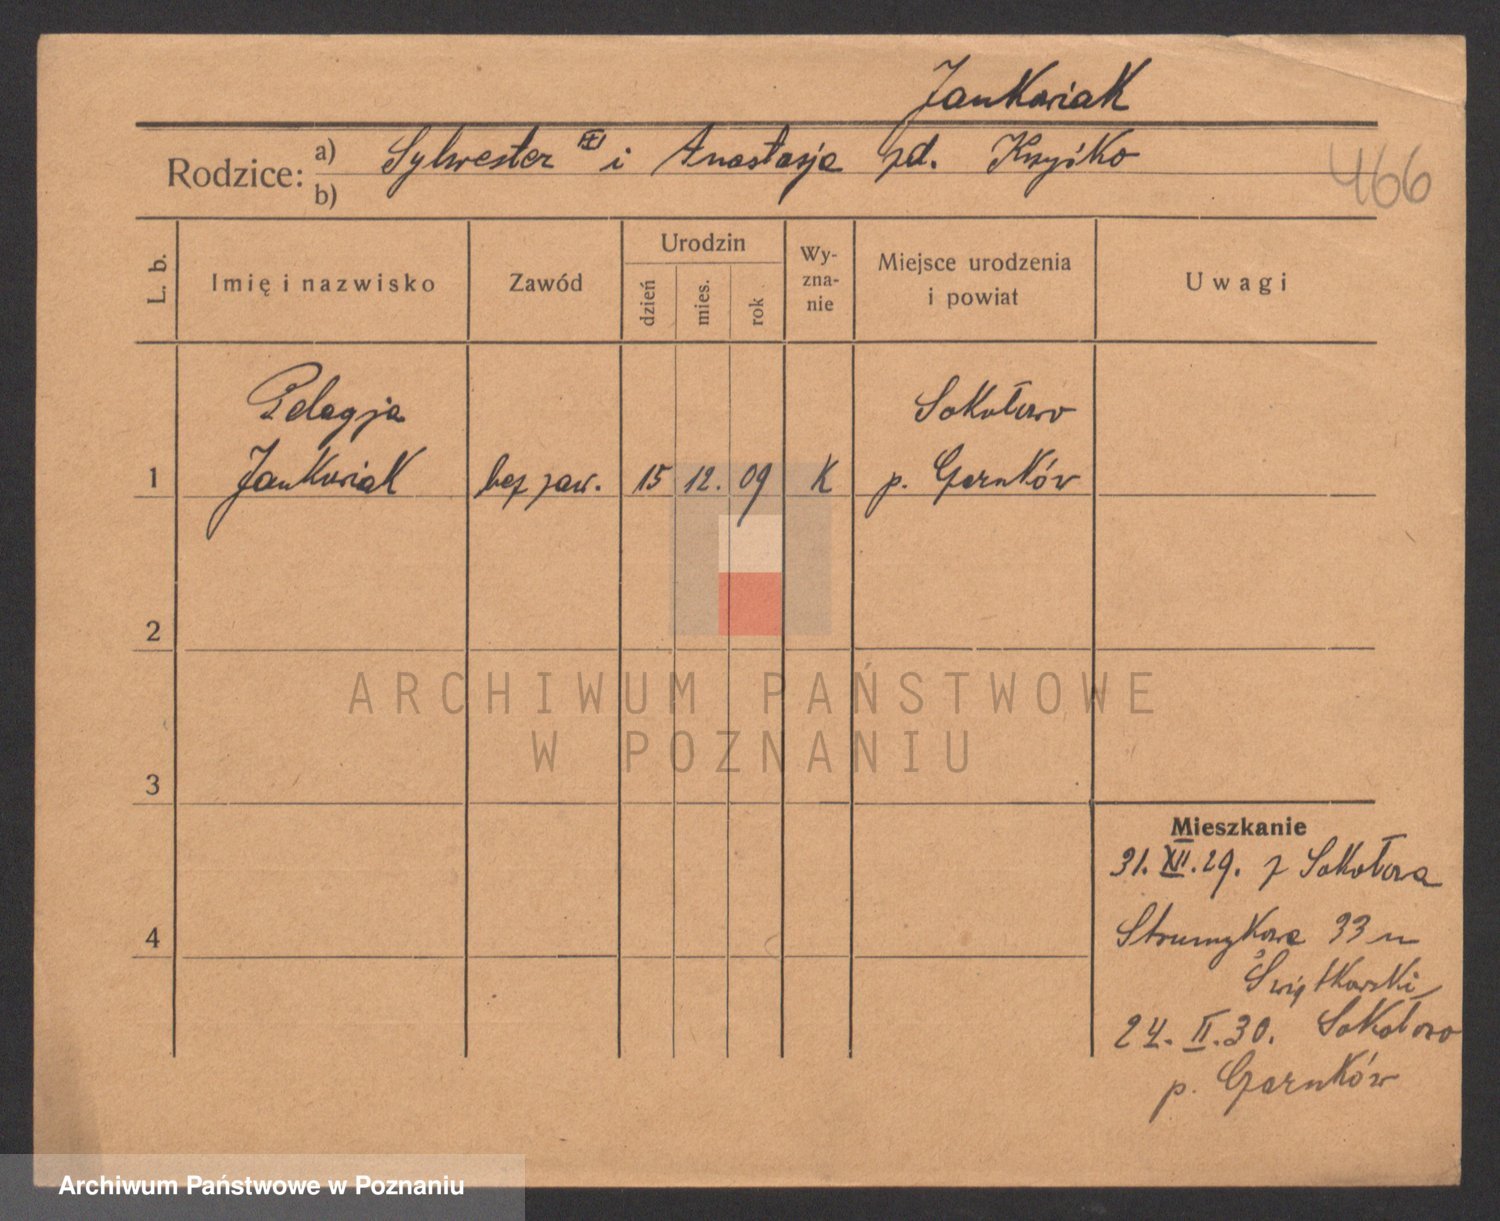 Jankowiak
Rodzice: a) Sylwester i Anastazja zd.
b)
466
L. b.
Imię i nazwisko
Zawód
Urodzin
dzień
mies.
rok
Wy-
zna-
nie
Miejsce urodzenia
i powiat
Uwagi
Pelagja Sokołowo
1 Jankowiak bez zaw. 15 12. 09 K p. Czarnków
2
3
4
Mieszkanie
31. XII. 29. z Sokołowa
Strumykowa 33 u
Świątkowski
24. II. 30. Sokołowo
p. Czarnków
ARCHIWUM PAŃSTWOWE
W POZNANIU
Archiwum Państwowe w Poznaniu